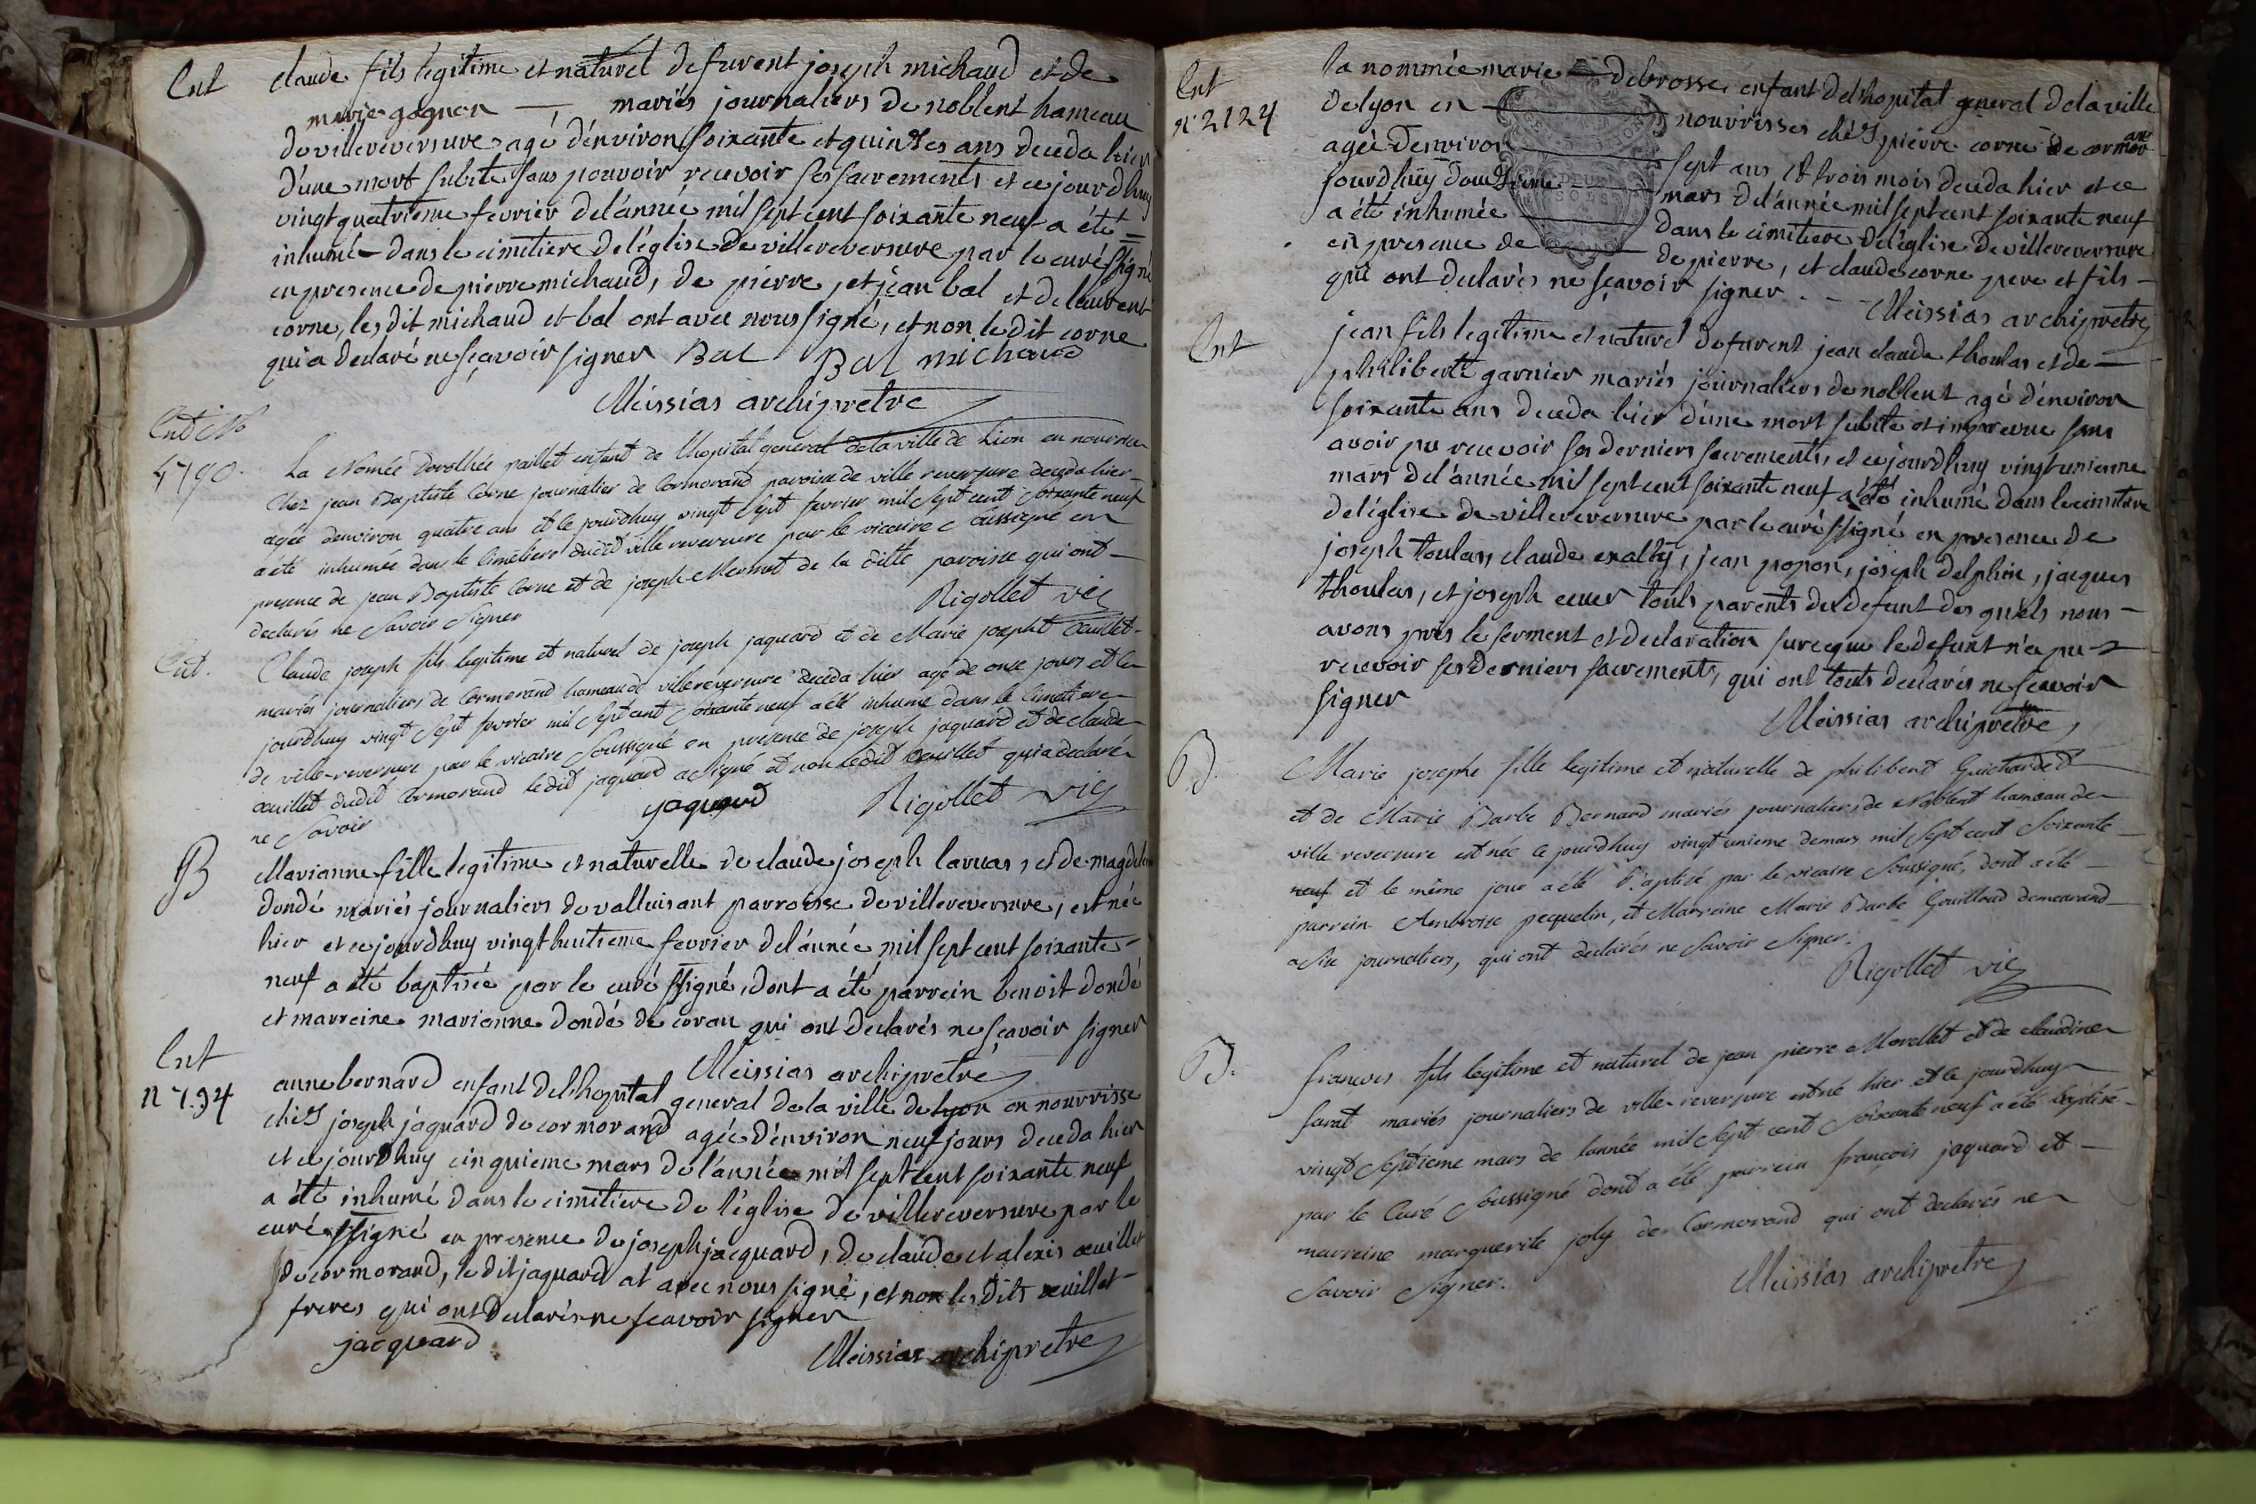 Ent
claude fils legitime et naturel de furent joseph michaud et de
marie gagnon — mariés journaliers de noblent hameau
de villereversure agé d'environ soixante et quinzes ans deceda hier
d'une mort subite sans pouvoir recevoir ses sacrements et ce jourdhuy
vingt quatrieme fevrier de l'année mil sept cent soixante neuf a été
inhumé dans le cimetiere de l'église de villereversure par le curé ssigné
en presence de pierre michaud, de pierre, et jean bal et de laurent
corne, lesdit michaud et bal ont avec nous signé, et non ledit corne
qui a declaré ne sçavoir signer Bal Bal michaud
Meissias archiprêtre
Ent No
4790.
La Nomée Dorothée paillet enfant de l'hopital general de la ville de Lion en nourrice
chez jean Baptiste Corne journalier de Cormorand paroisse de ville reversure deceda hier
agée denviron quatre ans et le jourdhuy vingt sept fevrier mil sept cent soixante neuf
a été inhumée dans le cimetiere dudit ville reversure par le vicaire soussigné en
presence de jean Baptiste Corne et de joseph Mermet de la ditte paroisse qui ont
declarés ne Savoir Signer Rigollet vic
Ent.
Claude joseph fils legitime et naturel de joseph jaquard et de Marie josepht Oeuillet
mariés journaliers de Cormorand hameau de villereversure deceda hier agé de onze jours et le
jourdhuy vingt sept fevrier mil sept cent soixante neuf a été inhumé dans le cimetiere
de ville-reversure par le vicaire Soussigné en presence de joseph jaquard et de claude
oeuillet dudit Cormorand ledit jaquard a signé et non ledit oeuillet qui a declaré
ne Savoir yaquard Rigollet vic
B
Marianne fille legitime et naturelle de claude joseph laruas, et de magdelene
dondé mariés journaliers de valluisant parroisse de villereversure, est née
hier et ce jourdhuy vingt huitieme fevrier de l'année mil sept cent soixante
neuf a été baptisée par le curé ssigné, dont a été parrein benoit dondé
et marreine marianne dondé de coran qui ont declarés ne sçavoir signer
Meissias archiprêtre
Ent
n 7.94
anne bernard enfant de l'hopital general de la ville de lyon en nourrisse
chés joseph jaquard de cormorand agée d'environ neuf jours deceda hier
et ce jourdhuy cinquieme mars de l'année mil sept cent soixante neuf
a été inhumé dans le cimitiere de l'église de villereversure par le
curé ssigné en presence de joseph jacquard, de claude et alexis oeuillet
de cormorand, le dit jaquard at avec nous signé, et non les dits oeuillet
freres qui ont declarés ne sçavoir signer
jacquard Meissias archiprêtre
Ent
n° 2124
la nommée marie debrosse, enfant de l'hopital general de la ville
de lyon en nourrisses chés pierre corne de cormoran
agée denviron sept ans et trois mois deceda hier et ce
jourdhuy douzieme mars de l'année mil sept cent soixante neuf
a été inhumée dans le cimitiere de l'église de villereversure
en presence de de pierre, et claude corne pere et fils
qui ont declarés ne sçavoir signer. Meissias archiprêtre
Ent
jean fils legitime et naturel de furent jean claude thoulas et de
philiberte garnier mariés journaliers de noblent agé d'environ
soixante ans deceda hier d'une mort subite et imprevue sans
avoir pu recevoir ses derniers sacrements, et ce jourdhuy vingt unieme
mars de l'année mil sept cent soixante neuf a été inhumé dans le cimitiere
de l'église de villereversure par le curé ssigné en presence de
joseph toulas, claude exalty, jean propon, joseph delphin, jacques
thoulas, et joseph ceuer touts parents du defunt des quels nous
avons pris le serment et declaration sur ce que le defunt n'a pu
recevoir ses derniers sacrements, qui ont touts declarés ne sçavoir
signer
Meissias archiprêtre
B.
Marie josephe fille legitime et naturelle de philibert Guichardet
et de Marie Barbe Bernard mariés journaliers de Noblent hameau de
ville reversure est née le jourdhuy vingt unieme de mars mil sept cent soixante
neuf et le même jour a été Baptisé par le vicaire Soussigné, dont a été
parrein Ambroise pequelin, et Marreine Marie Barbe Gouilloud demeurand
a Sire journaliers, qui ont declarés ne Savoir Signer.
Rigollet vic
B.
francois fils legitime et naturel de jean pierre Morellet et de claudine
farat mariés journaliers de ville-reversure est né hier et le jourdhuy
vingt septieme mars de l'année mil sept cent soixante neuf a été baptisé
par le Curé Soussigné dont a été parrein françois jaquard et
marreine marguerite joly de Cormorand qui ont declarés ne
Savoir Signer.
Meissias archiprêtre